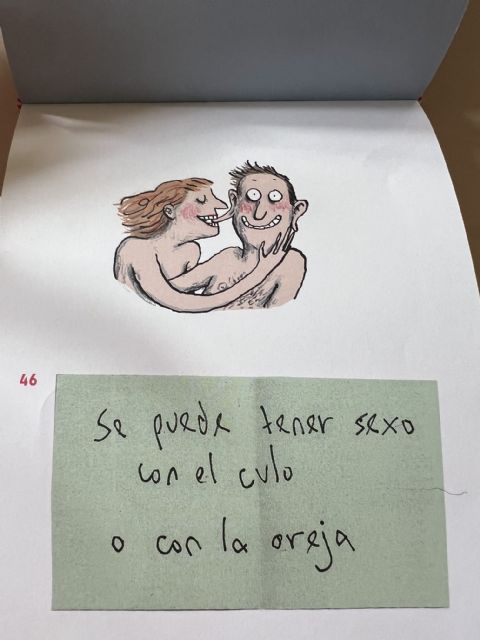 46
Se puede tener sexo
con el culo
o con la oreja